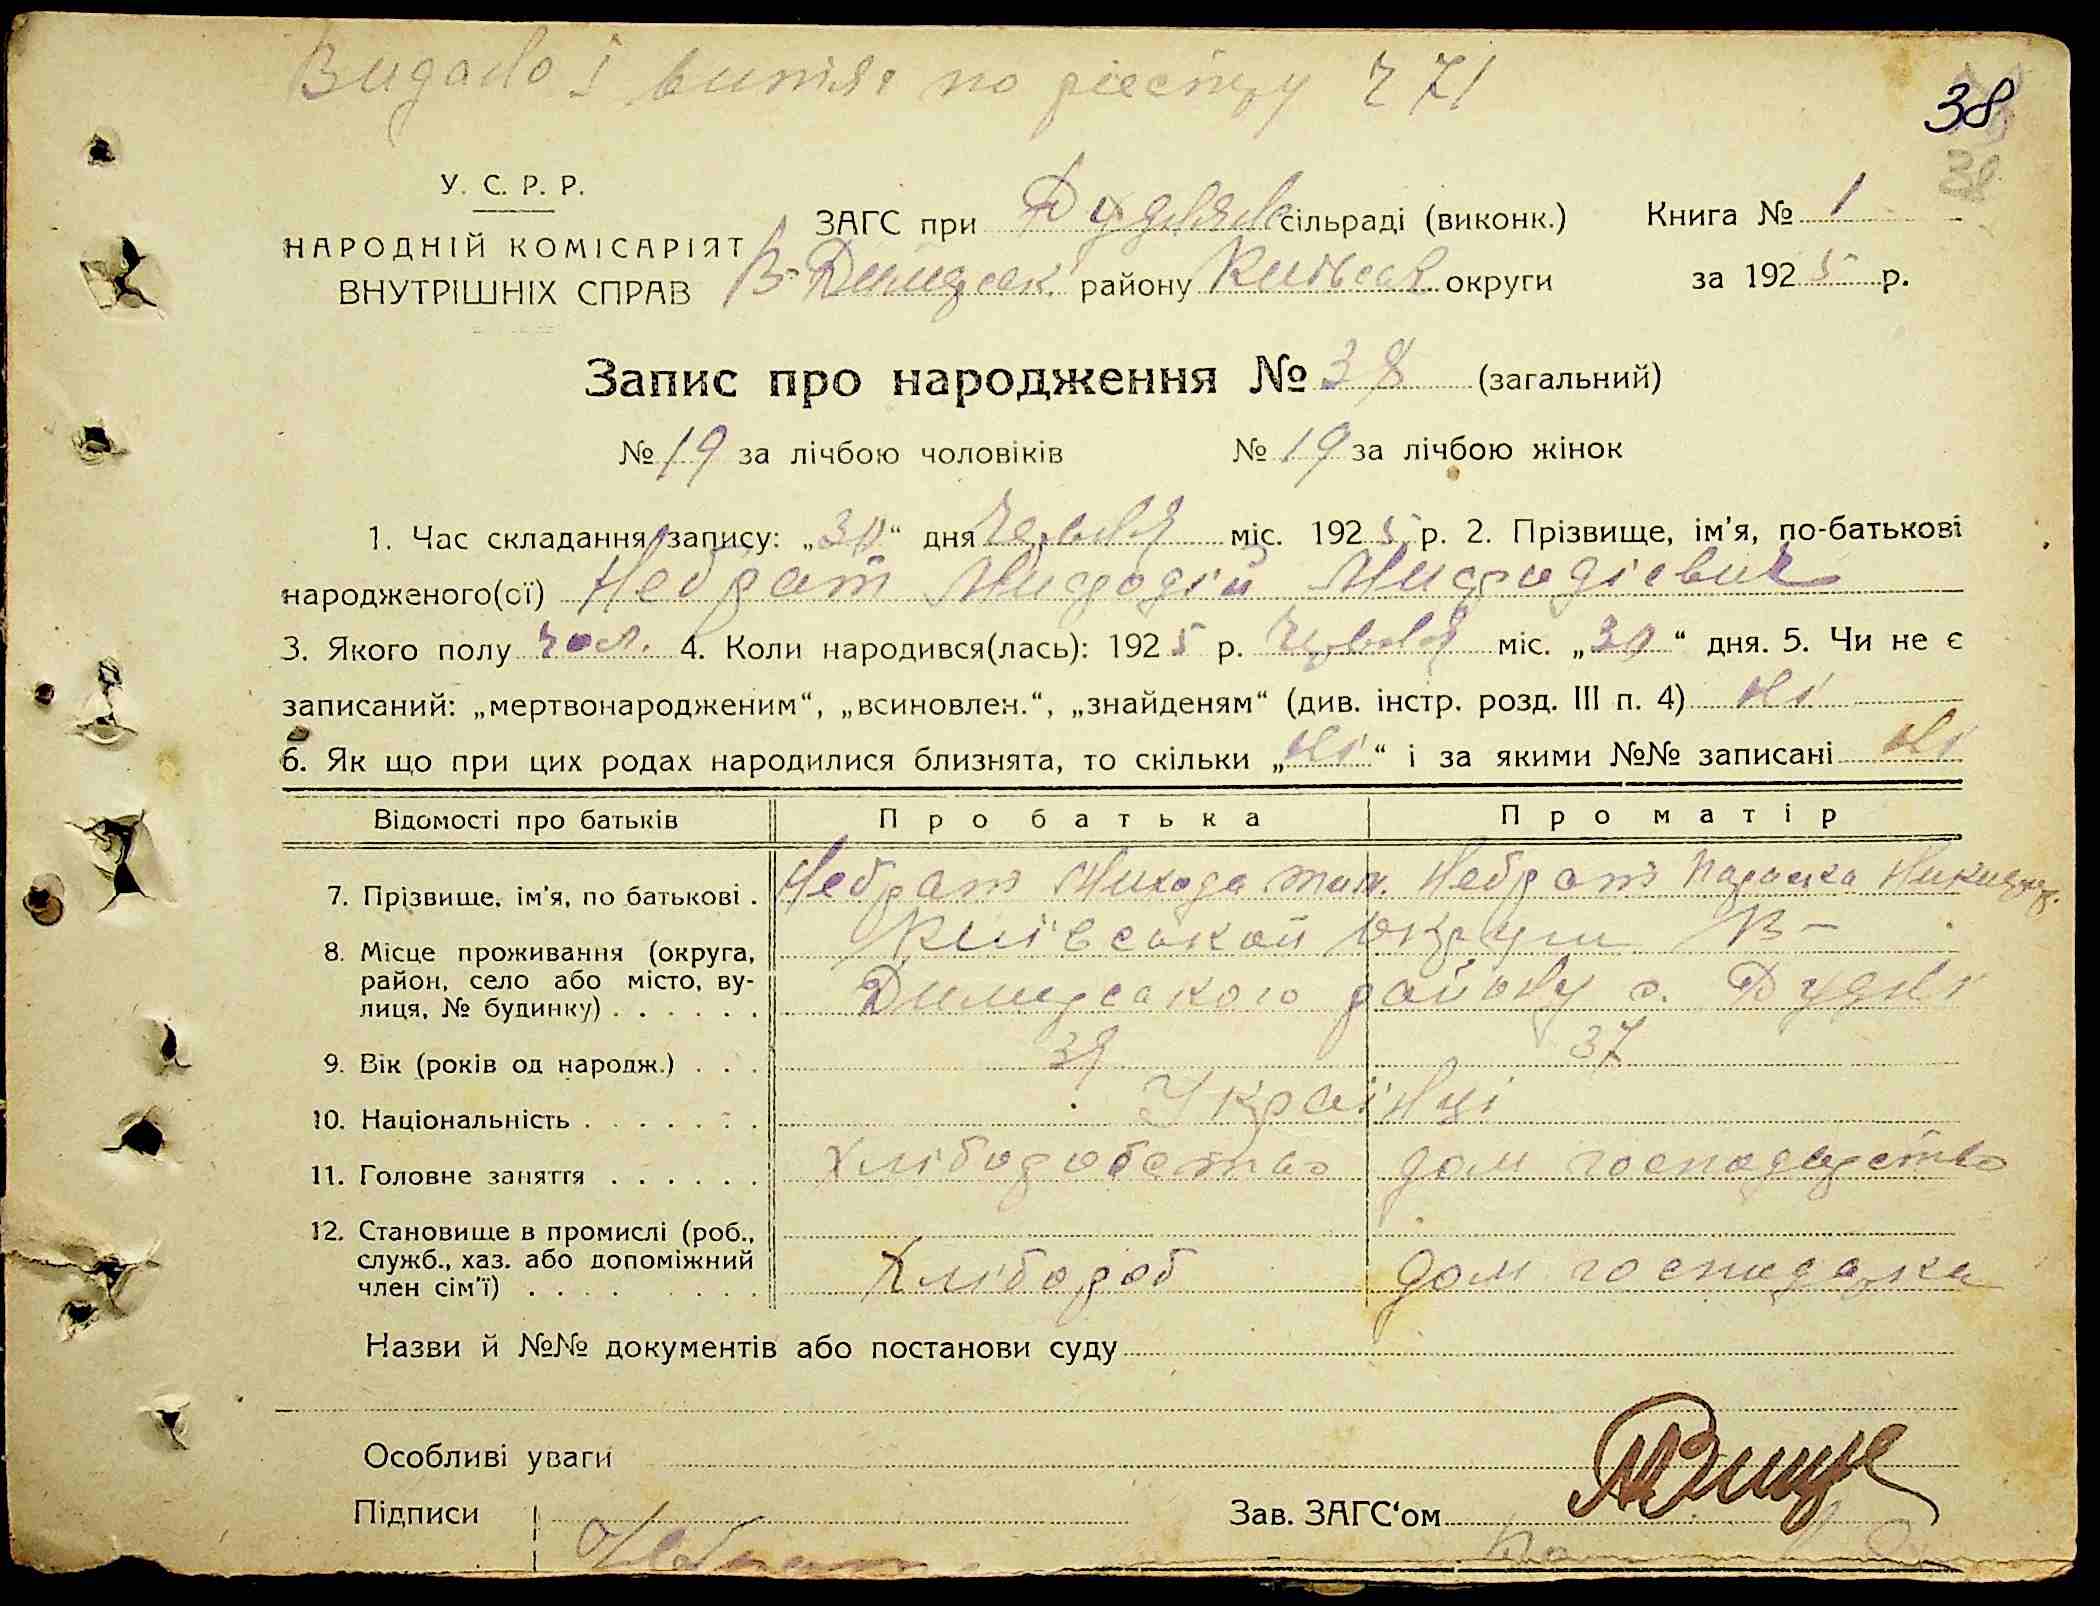 Видано і витяг по реєстру Ч 71
38
38
У. С. Р. Р.
НАРОДНІЙ КОМІСАРІЯТ
ВНУТРІШНІХ СПРАВ
ЗАГС при сільраді (виконк.) Книга № 1
В-Димирськ. району Київськ округи за 1925 р.
Запис про народження № 38 (загальний)
№ 19 за лічбою чоловіків № 19 за лічбою жінок
1. Час складання запису: „30“ дня червня міс. 1925 р. 2. Прізвище, ім'я, по-батькові
народженого(ої) Небрат Мифодій Мифодієвич
3. Якого полу чол. 4. Коли народився(лась): 1925 р. червня міс. „30“ дня. 5. Чи не є
записаний: „мертвонародженим“, „всиновлен.“, „знайденям“ (див. інстр. розд. III п. 4) Ні
6. Як що при цих родах народилися близнята, то скільки „Ні“ і за якими №№ записані Ні
Відомості про батьків Про батька Про матір
7. Прізвище, ім'я, по батькові . Небрат Небрат Параска
8. Місце проживання (округа, район, село або місто, вулиця, № будинку) . . . . . . Київської округи В-
Димирського району с. Дудкі
9. Вік (років од народж.) . . . 38 37
10. Національність . . . . . . . Українці
11. Головне заняття . . . . . . Хліборобство дом господарство
12. Становище в промислі (роб., служб., хаз. або допоміжний член сім'ї) . . . . . . . . Хлібороб дом господарка
Назви й №№ документів або постанови суду
Особливі уваги
Підписи Зав. ЗАГС'ом
Небрат